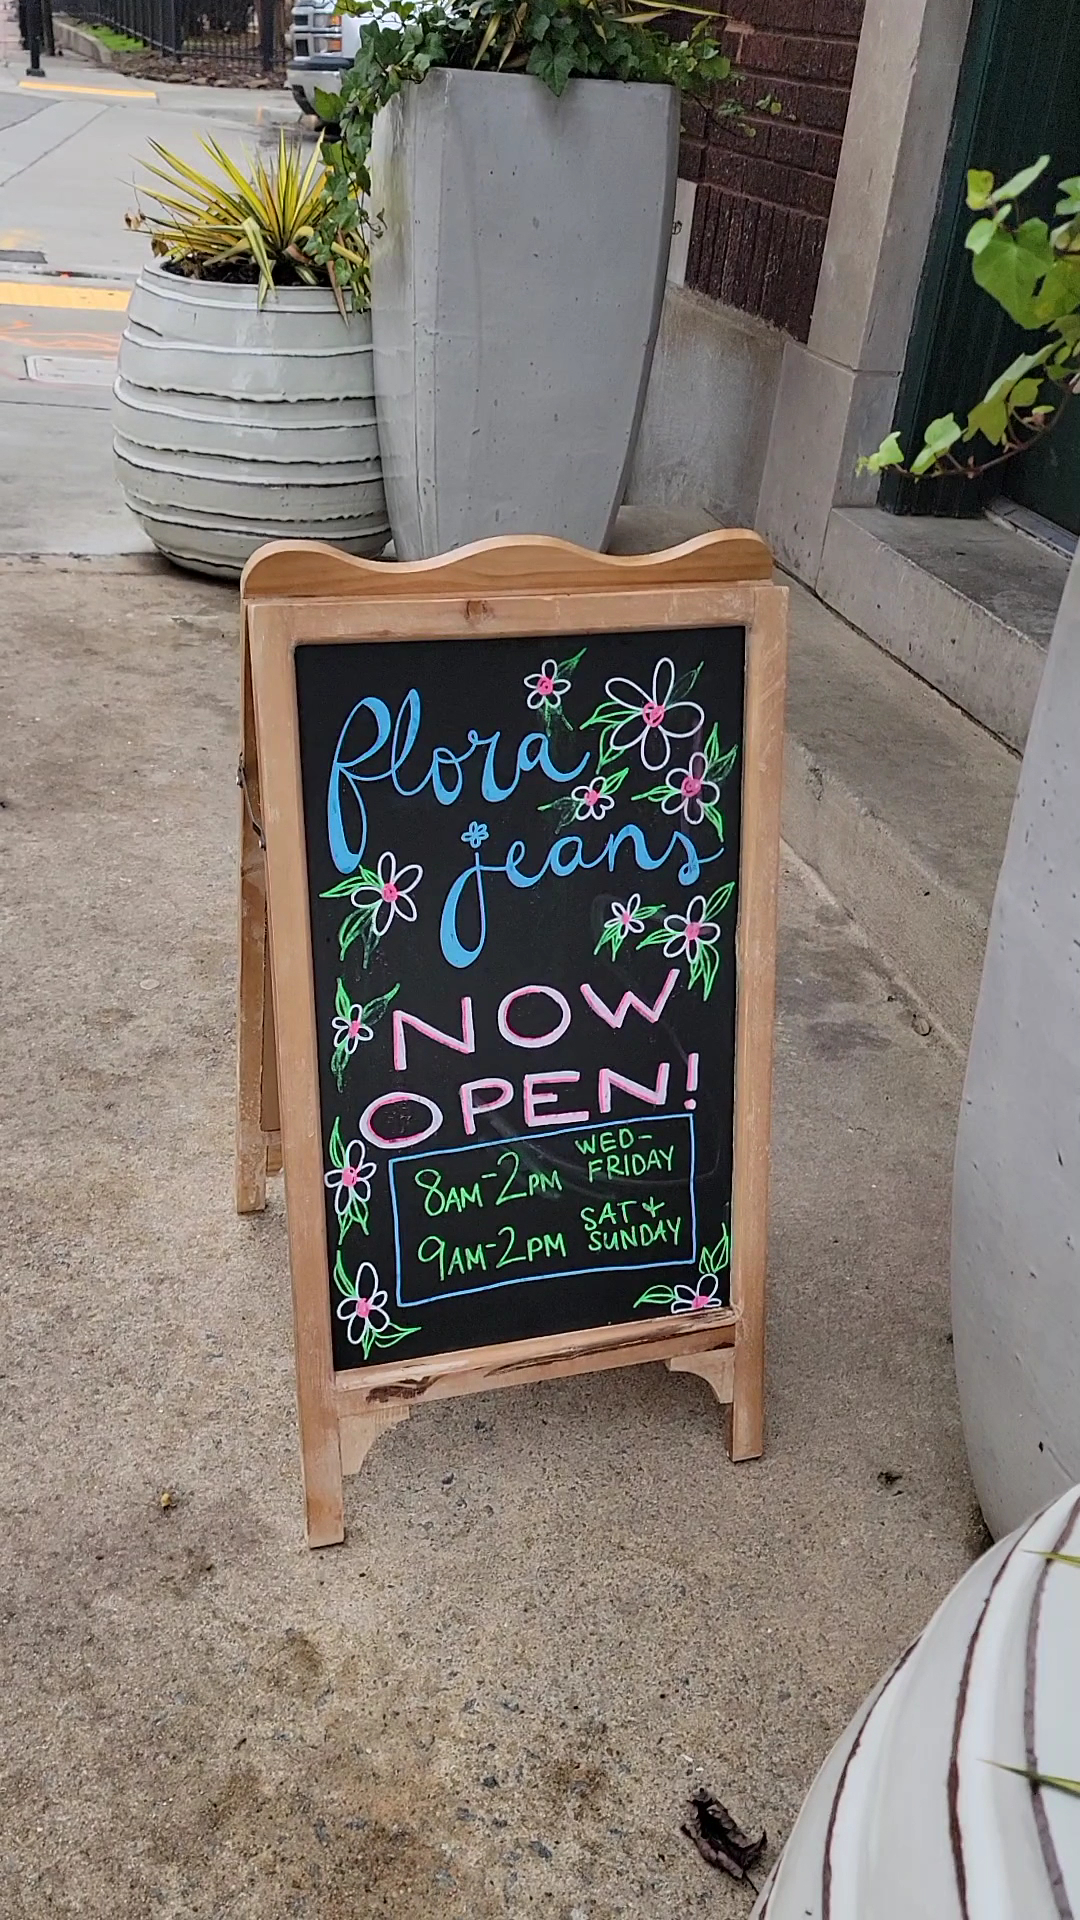 flora
jeans
NOW
OPEN!
8AM-2PM WED-
FRIDAY
9AM-2PM SAT +
SUNDAY